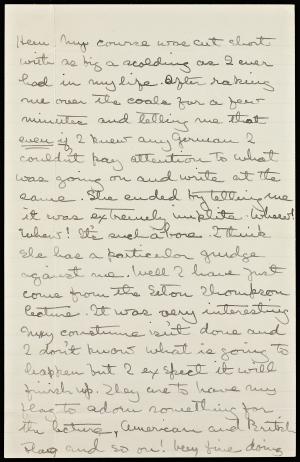 Here my course was cut short
with as big a scolding as I ever
had in my life. After raking
me over the coals for a few
minutes and telling me that
even if I knew any German I
couldn't pay attention to what
was going on and write at the
same. She ended by telling me
it was extremely implite. Whew!
Whew! It's such a bore. I think
she has a particular grudge
against me. Well I have just
come from the Seton Thompson
lecture. It was very interesting
My constume isn't done and
I don't know what is going to
happen but I ex spect it will
finish up. They are to have my
flag to adorn something for
the lecture, American and British
Flag and so on! Very fine doing